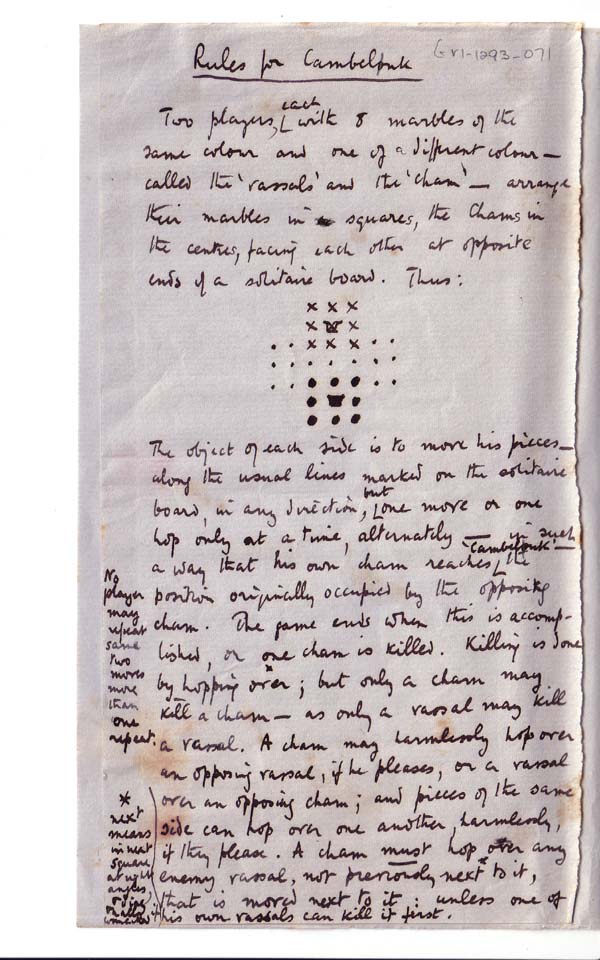 Rules for Cambelpuk
Gr1-1293-071
Two players, each with 8 marbles of the
same colour and one of a different colour —
called the 'vassals' and the 'cham' — arrange
their marbles in squares, the Chams in
the centres, facing each other at opposite
ends of a solitaire board. Thus:
The object of each side is to move his pieces —
along the usual lines marked on the solitaire
board, in any direction, but one move or one
hop only at a time, alternately — in such
a way that his own cham reaches 'Cambelpuk' — the
position originally occupied by the opposing
cham. The game ends when this is accomp-
lished, or one cham is killed. Killing is done
by hopping over; but only a cham may
kill a cham — as only a vassal may kill
a vassal. A cham may harmlessly hop over
an opposing vassal, if he pleases, or a vassal
over an opposing cham; and pieces of the same
side can hop over one another, harmlessly,
if they please. A cham must hop over any
enemy vassal, not previously next* to it,
that is moved next to it: unless one of
his own vassals can kill it first.
No
player
may
repeat
same
two
moves
more
than
one
repeat.
*
next
means
in next
square
at right
angles
or diag-
onally
connected